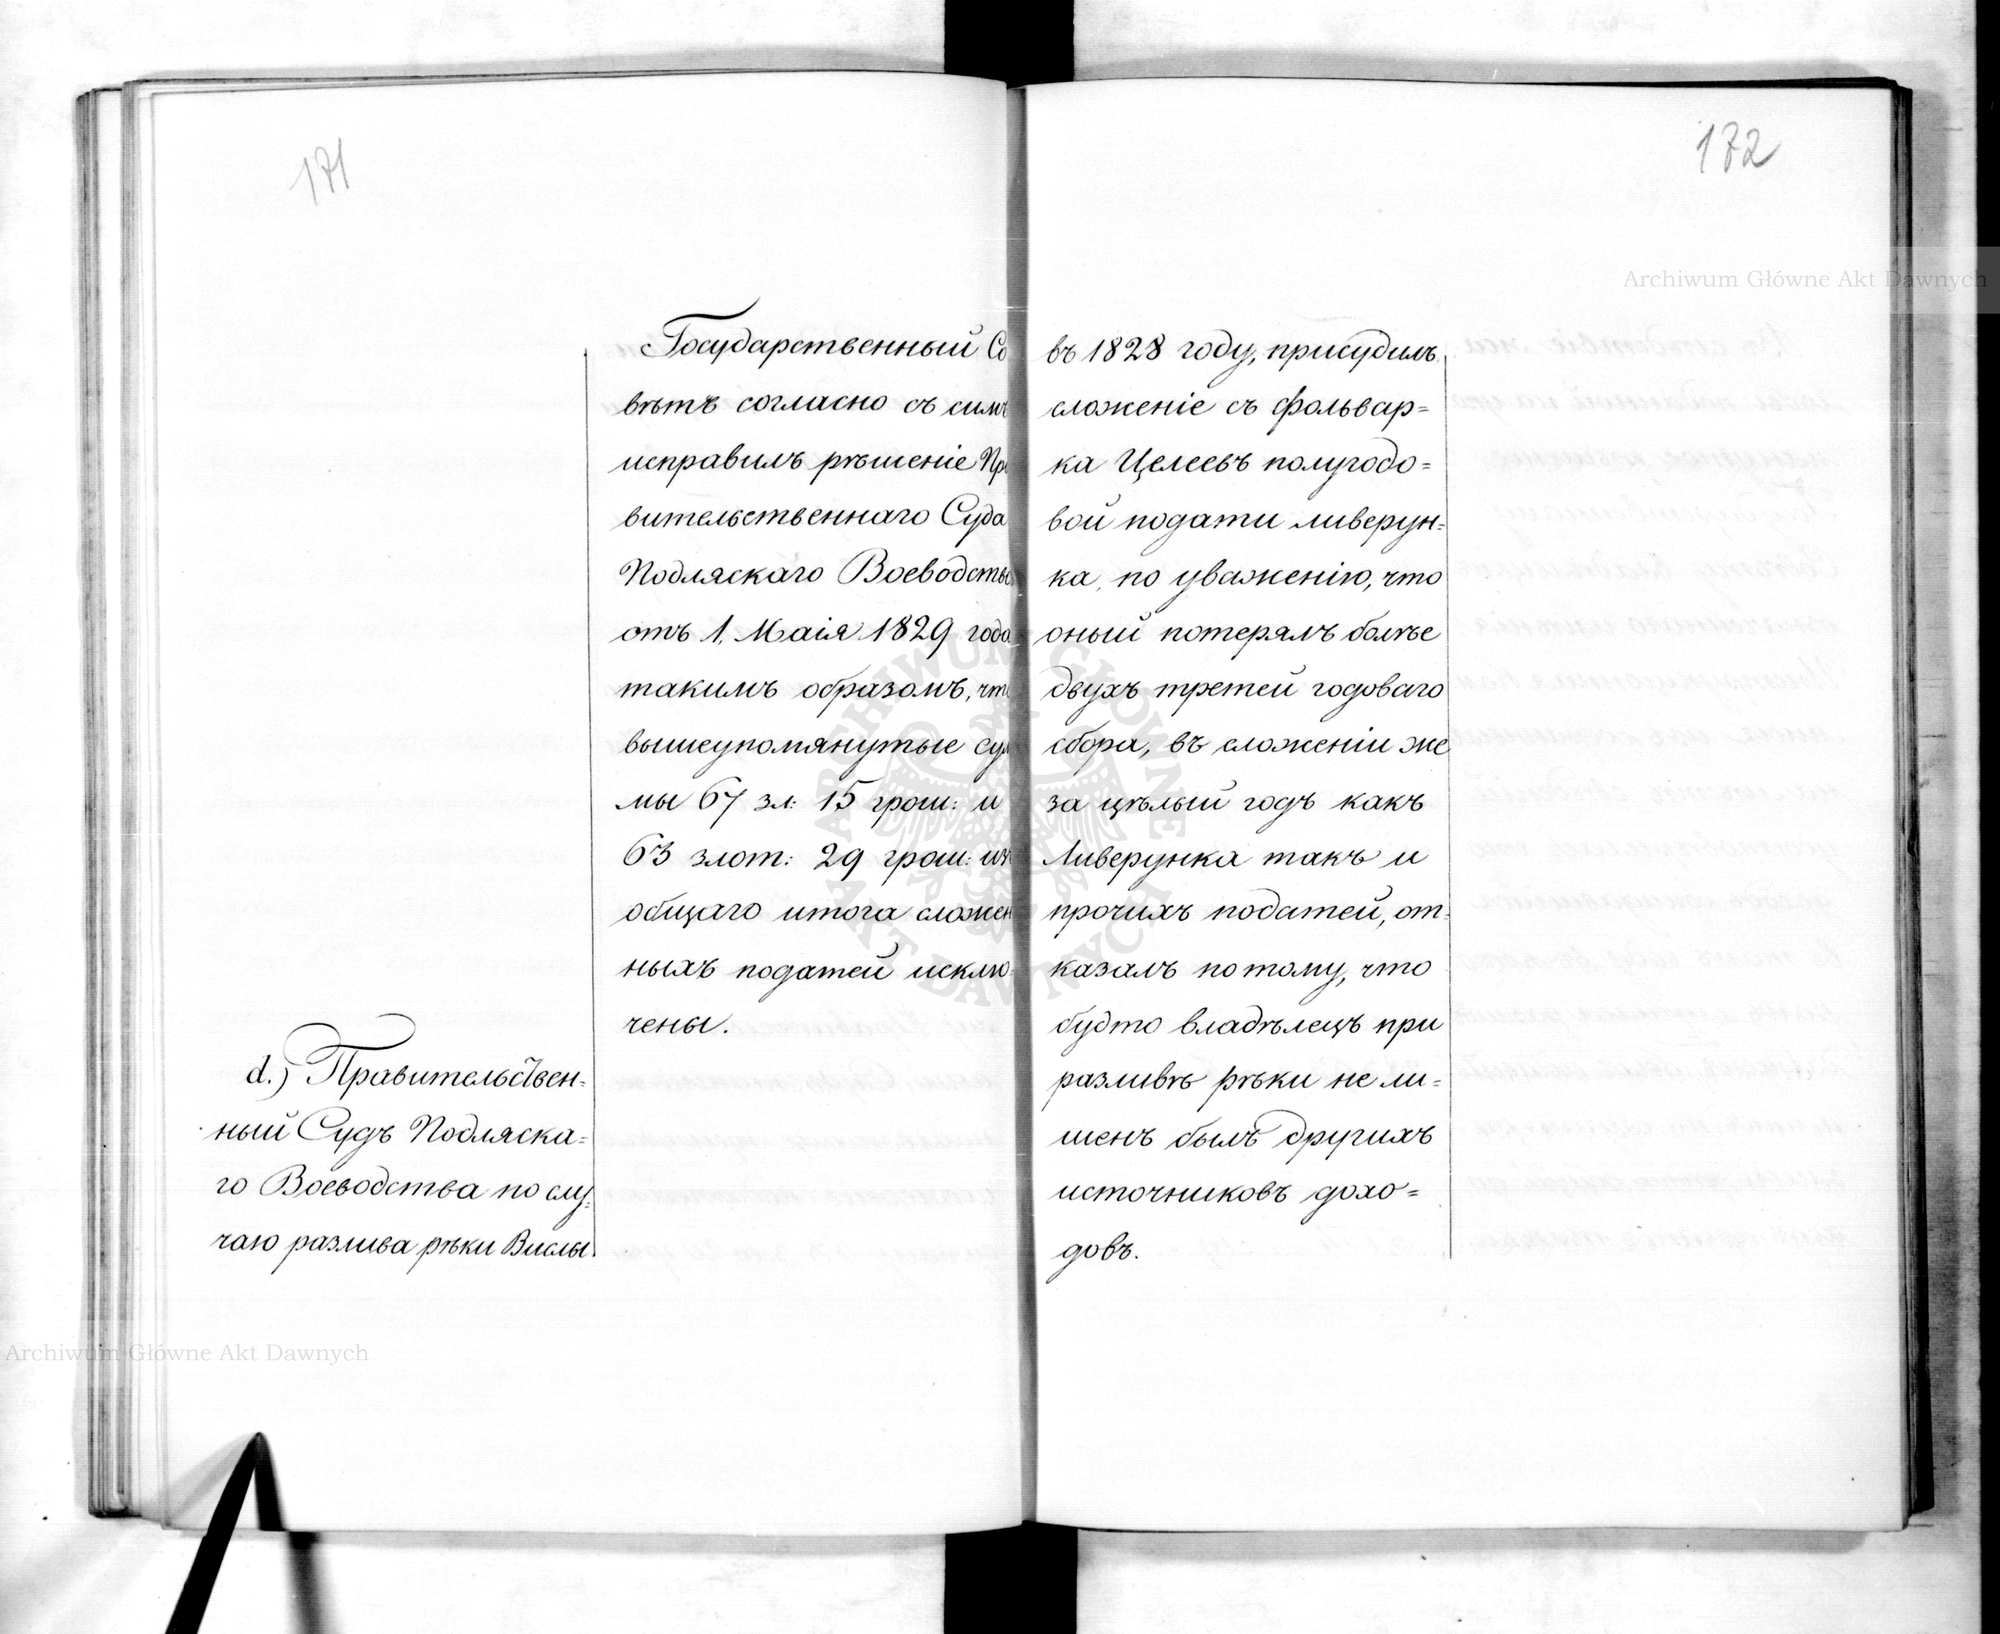 171
Государственный Со
вѣтъ согласно съ симъ
исправилъ рѣшеніе Пра
вительственнаго Суда
Подляскаго Воеводства
отъ 1. Маія 1829 года
такимъ образомъ, что
вышеупомянутые сум
мы 67 зл: 15 грош: и
63 злот: 29 грош: изъ
общаго итога сложен
ныхъ податей исклю
чены.
d.) Правительствен-
ный Судъ Подляска=
го Воеводства по слу-
чаю разлива рѣки Вислы
172
въ 1828 году, присудилъ
сложеніе съ фольвар=
ка Целеевъ полугодо=
вой подати ливерун=
ка, по уваженію, что
оный потерялъ болѣе
двухъ третей годоваго
сбора, въ сложеніи же
за цѣлый годъ какъ
Ливерунка такъ и
прочихъ податей, от-
казалъ потому, что
будто владѣлецъ при
разливѣ рѣки не ли=
шенъ былъ другихъ
источниковъ дохо=
довъ.
Archiwum Główne Akt Dawnych
Archiwum Główne Akt Dawnych
ARCHIWUM GŁÓWNE AKT DAWNYCH